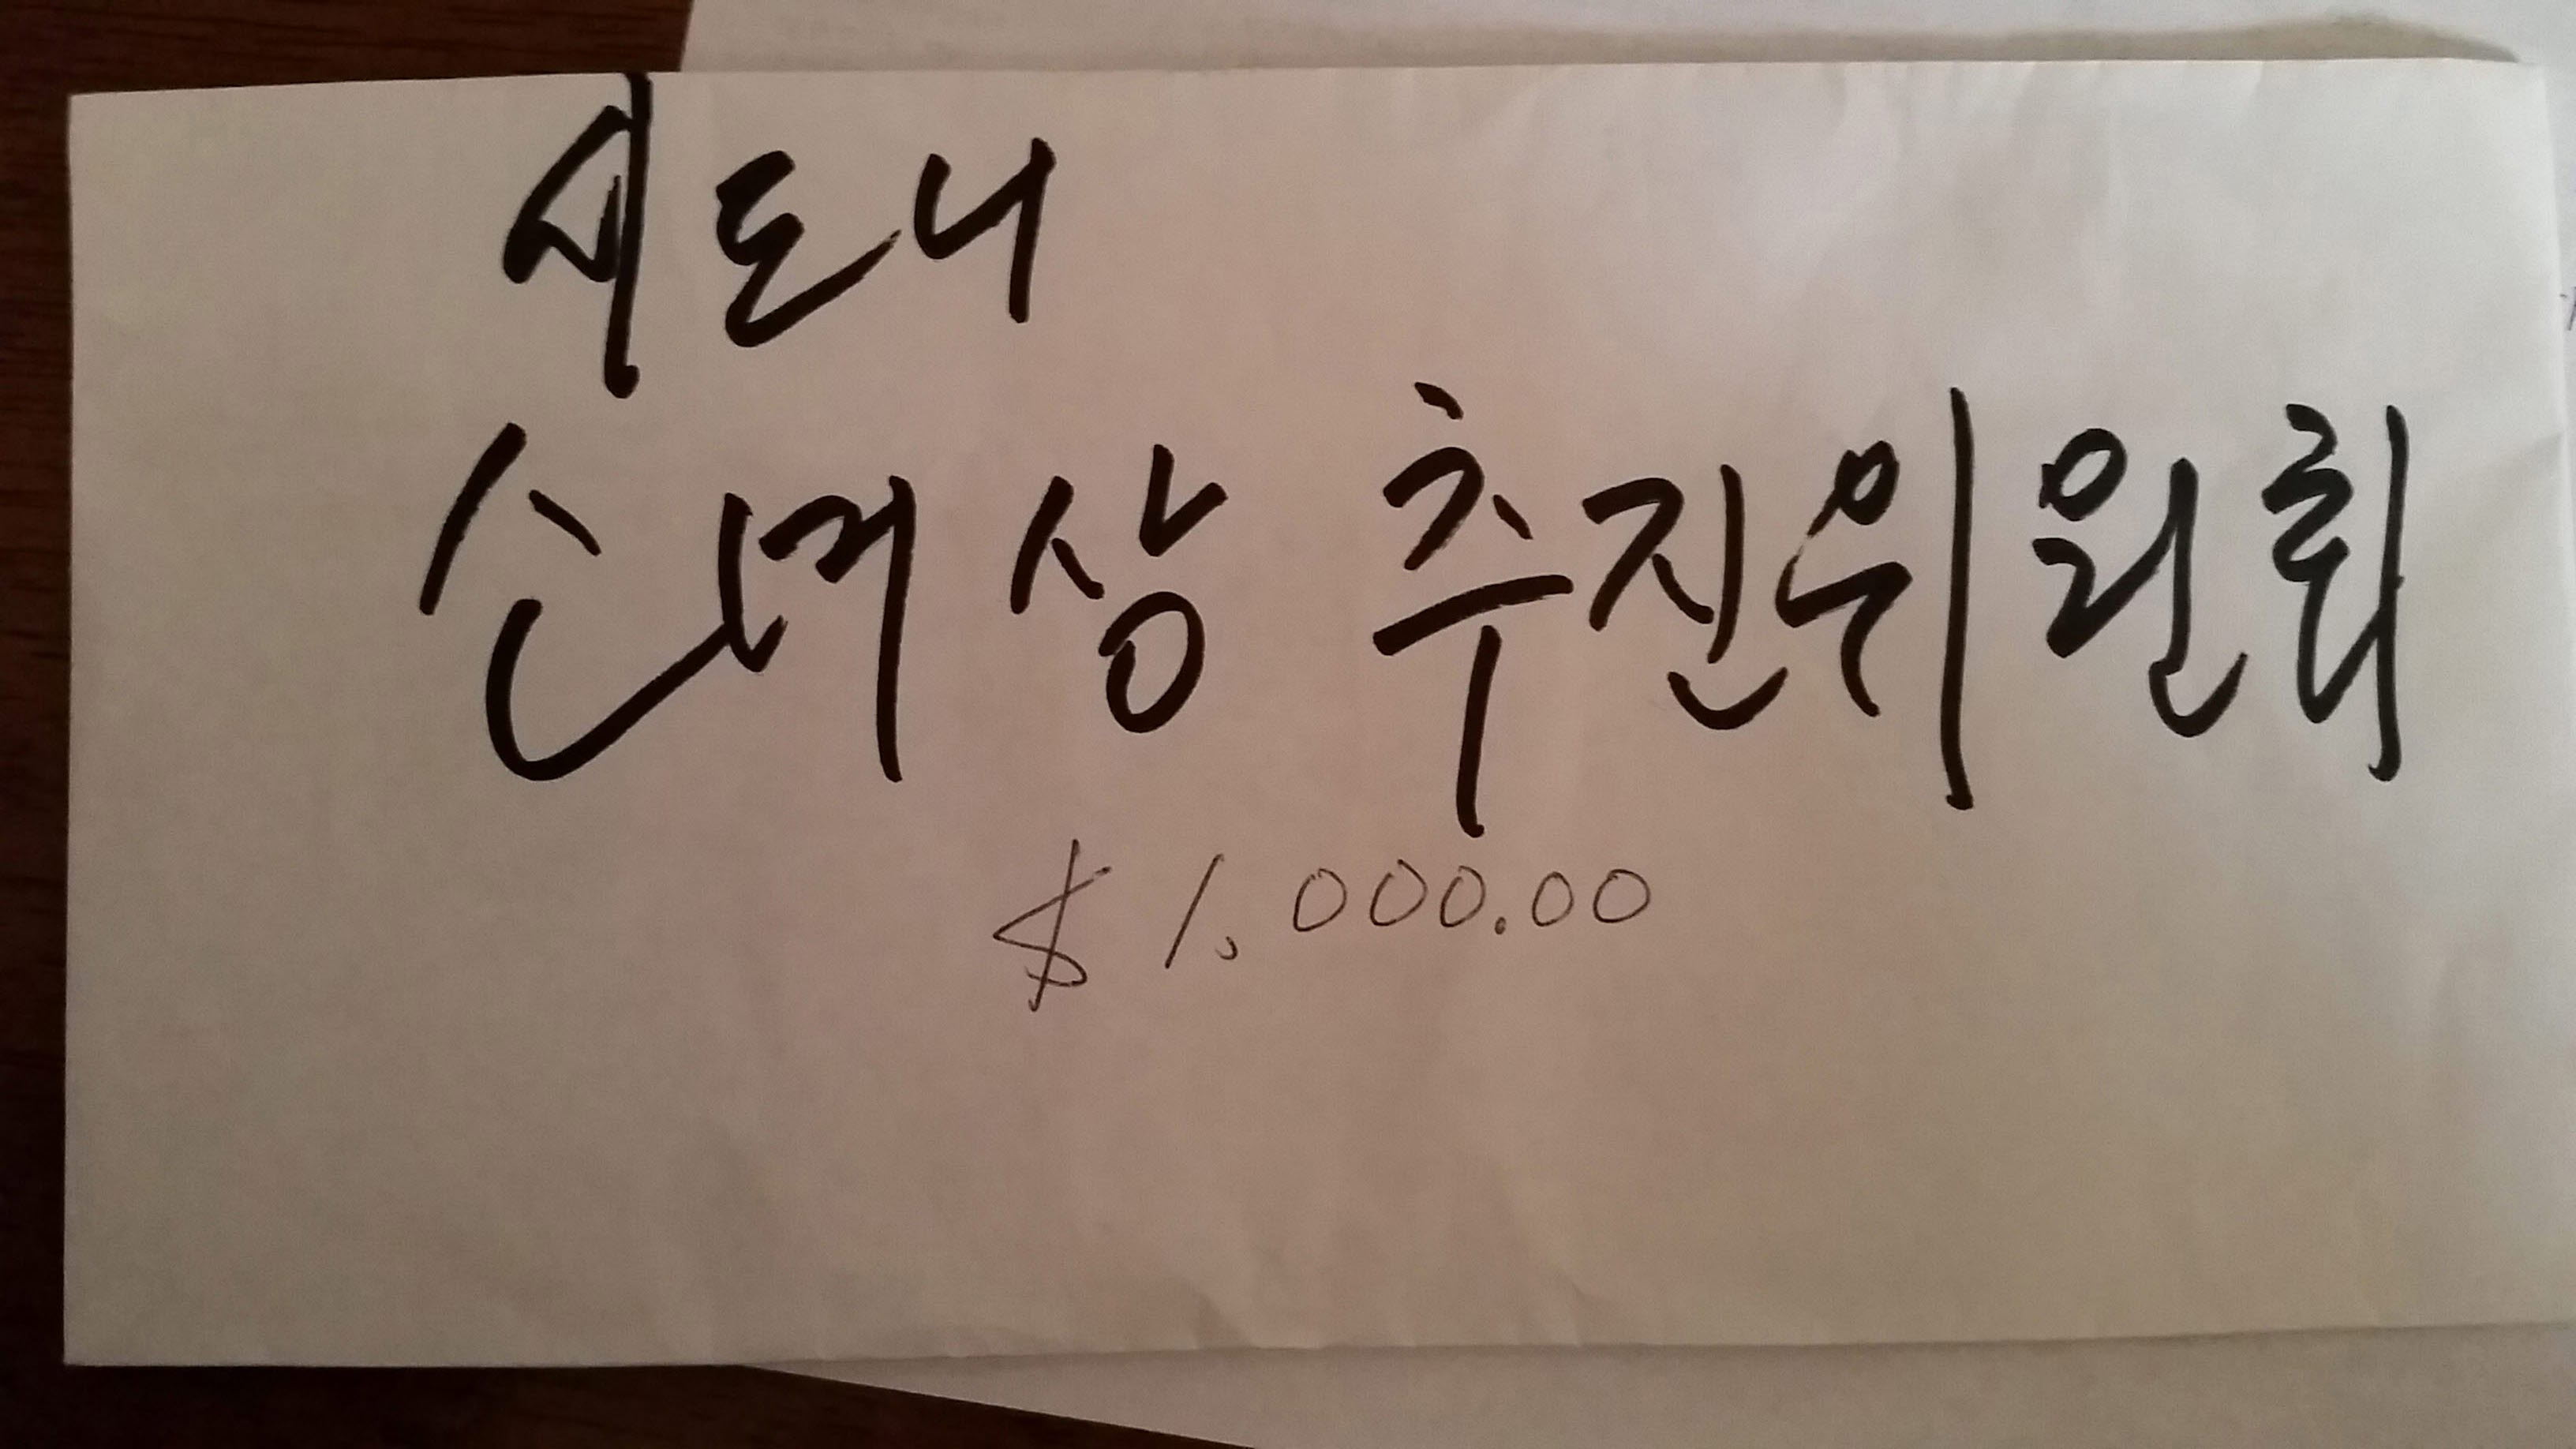 시드니
소녀상 추진위원회
$1,000.00